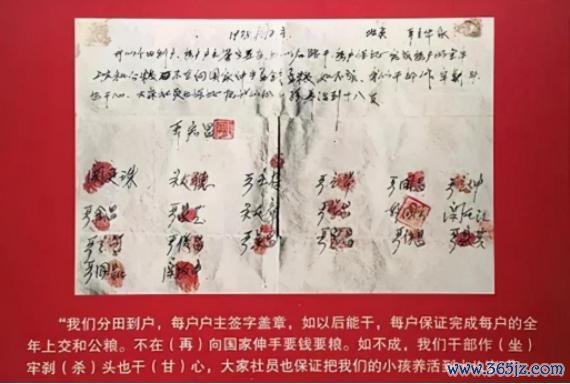 1978年12月 地点 严立华家
我们分田到户,每户户主签字盖章,如以后能干,每户保证完成每户的全年
上交和公粮不在向国家伸手要钱要粮,如不成,我们干部作牢刹头
也干心,大家社员也保证把我们的小孩养活到十八岁
严宏昌
关廷珠 严立华 严国昌 严立坤
严金昌 严家芝 关友江
严俊昌 严美昌
严国品 关友申
“我们分田到户,每户户主签字盖章,如以后能干,每户保证完成每户的全
年上交和公粮。不在(再)向国家伸手要钱要粮。如不成,我们干部作(坐)
牢刹(杀)头也干(甘)心,大家社员也保证把我们的小孩养活到
www.365jz.com